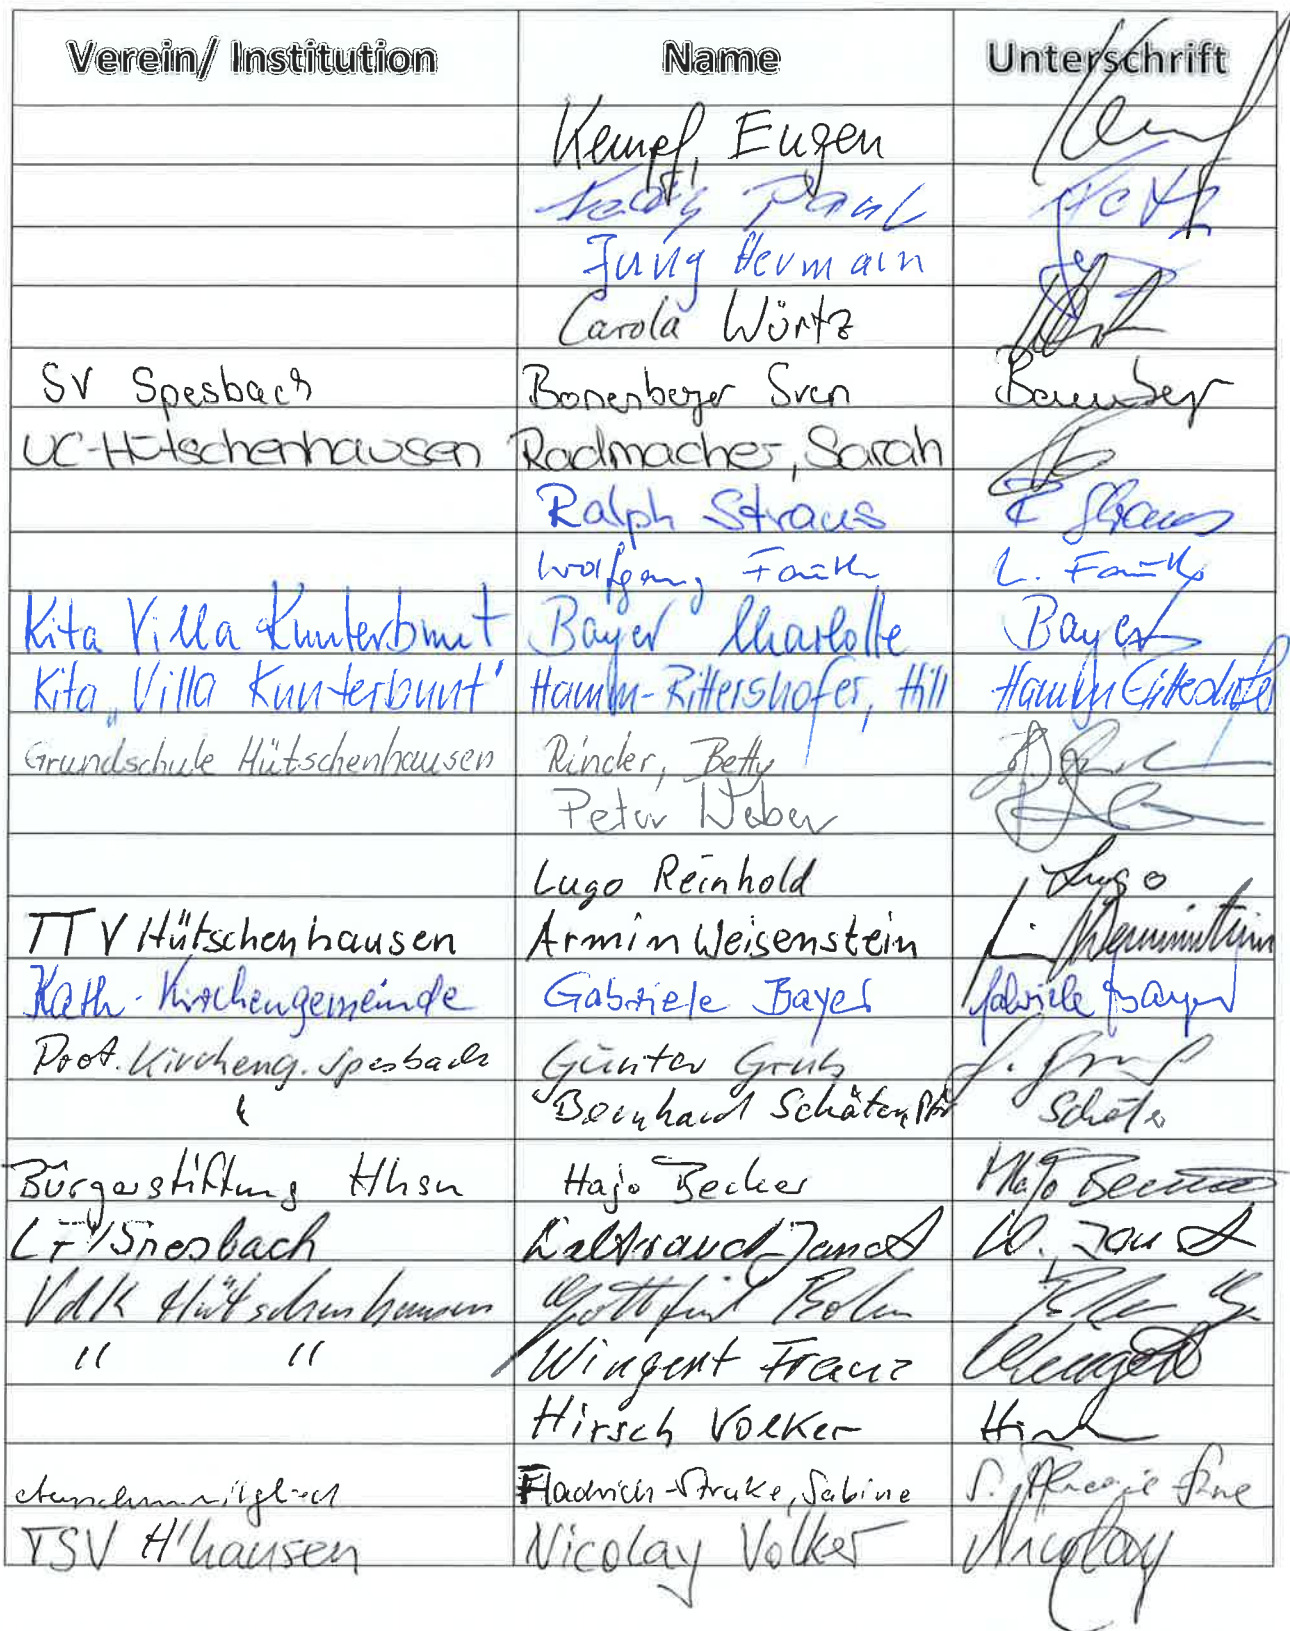 Verein/ Institution Name Unterschrift
Kempf, Eugen
Paul
Jung Hermann
Carola Würtz
SV Spesbach Bonenberger Sven
UC-Hütschenhausen Radmacher, Sarah
Ralph Straus R Straus
Wolfgang Fauth L. Fauth
Kita Villa Kunterbunt Bayer Charlotte Bayer
Kita "Villa Kunterbunt" Hamm-Rittershofer, Hill Hamm-Rittershofer
Grundschule Hütschenhausen Rinder, Betty
Peter Weber
Lugo Reinhold Lugo
TTV Hütschenhausen Armin Weisenstein
Kath. Kirchengemeinde Gabriele Bayer Gabriele Bayer
Prot. Kircheng. Spesbach Günter Grub
" Bernhard Schäfer, Pfr Schäfer
Bürgerstiftung Hhsn Hajo Becker Hajo Becker
Spesbach Waltraud Janot W. Janot
VdK Hütschenhausen Gottfried
" " Wingert Franz Wingert
Hirsch Volker Hirsch
Sabine S.
TSV H'hausen Nicolay Volker Nicolay